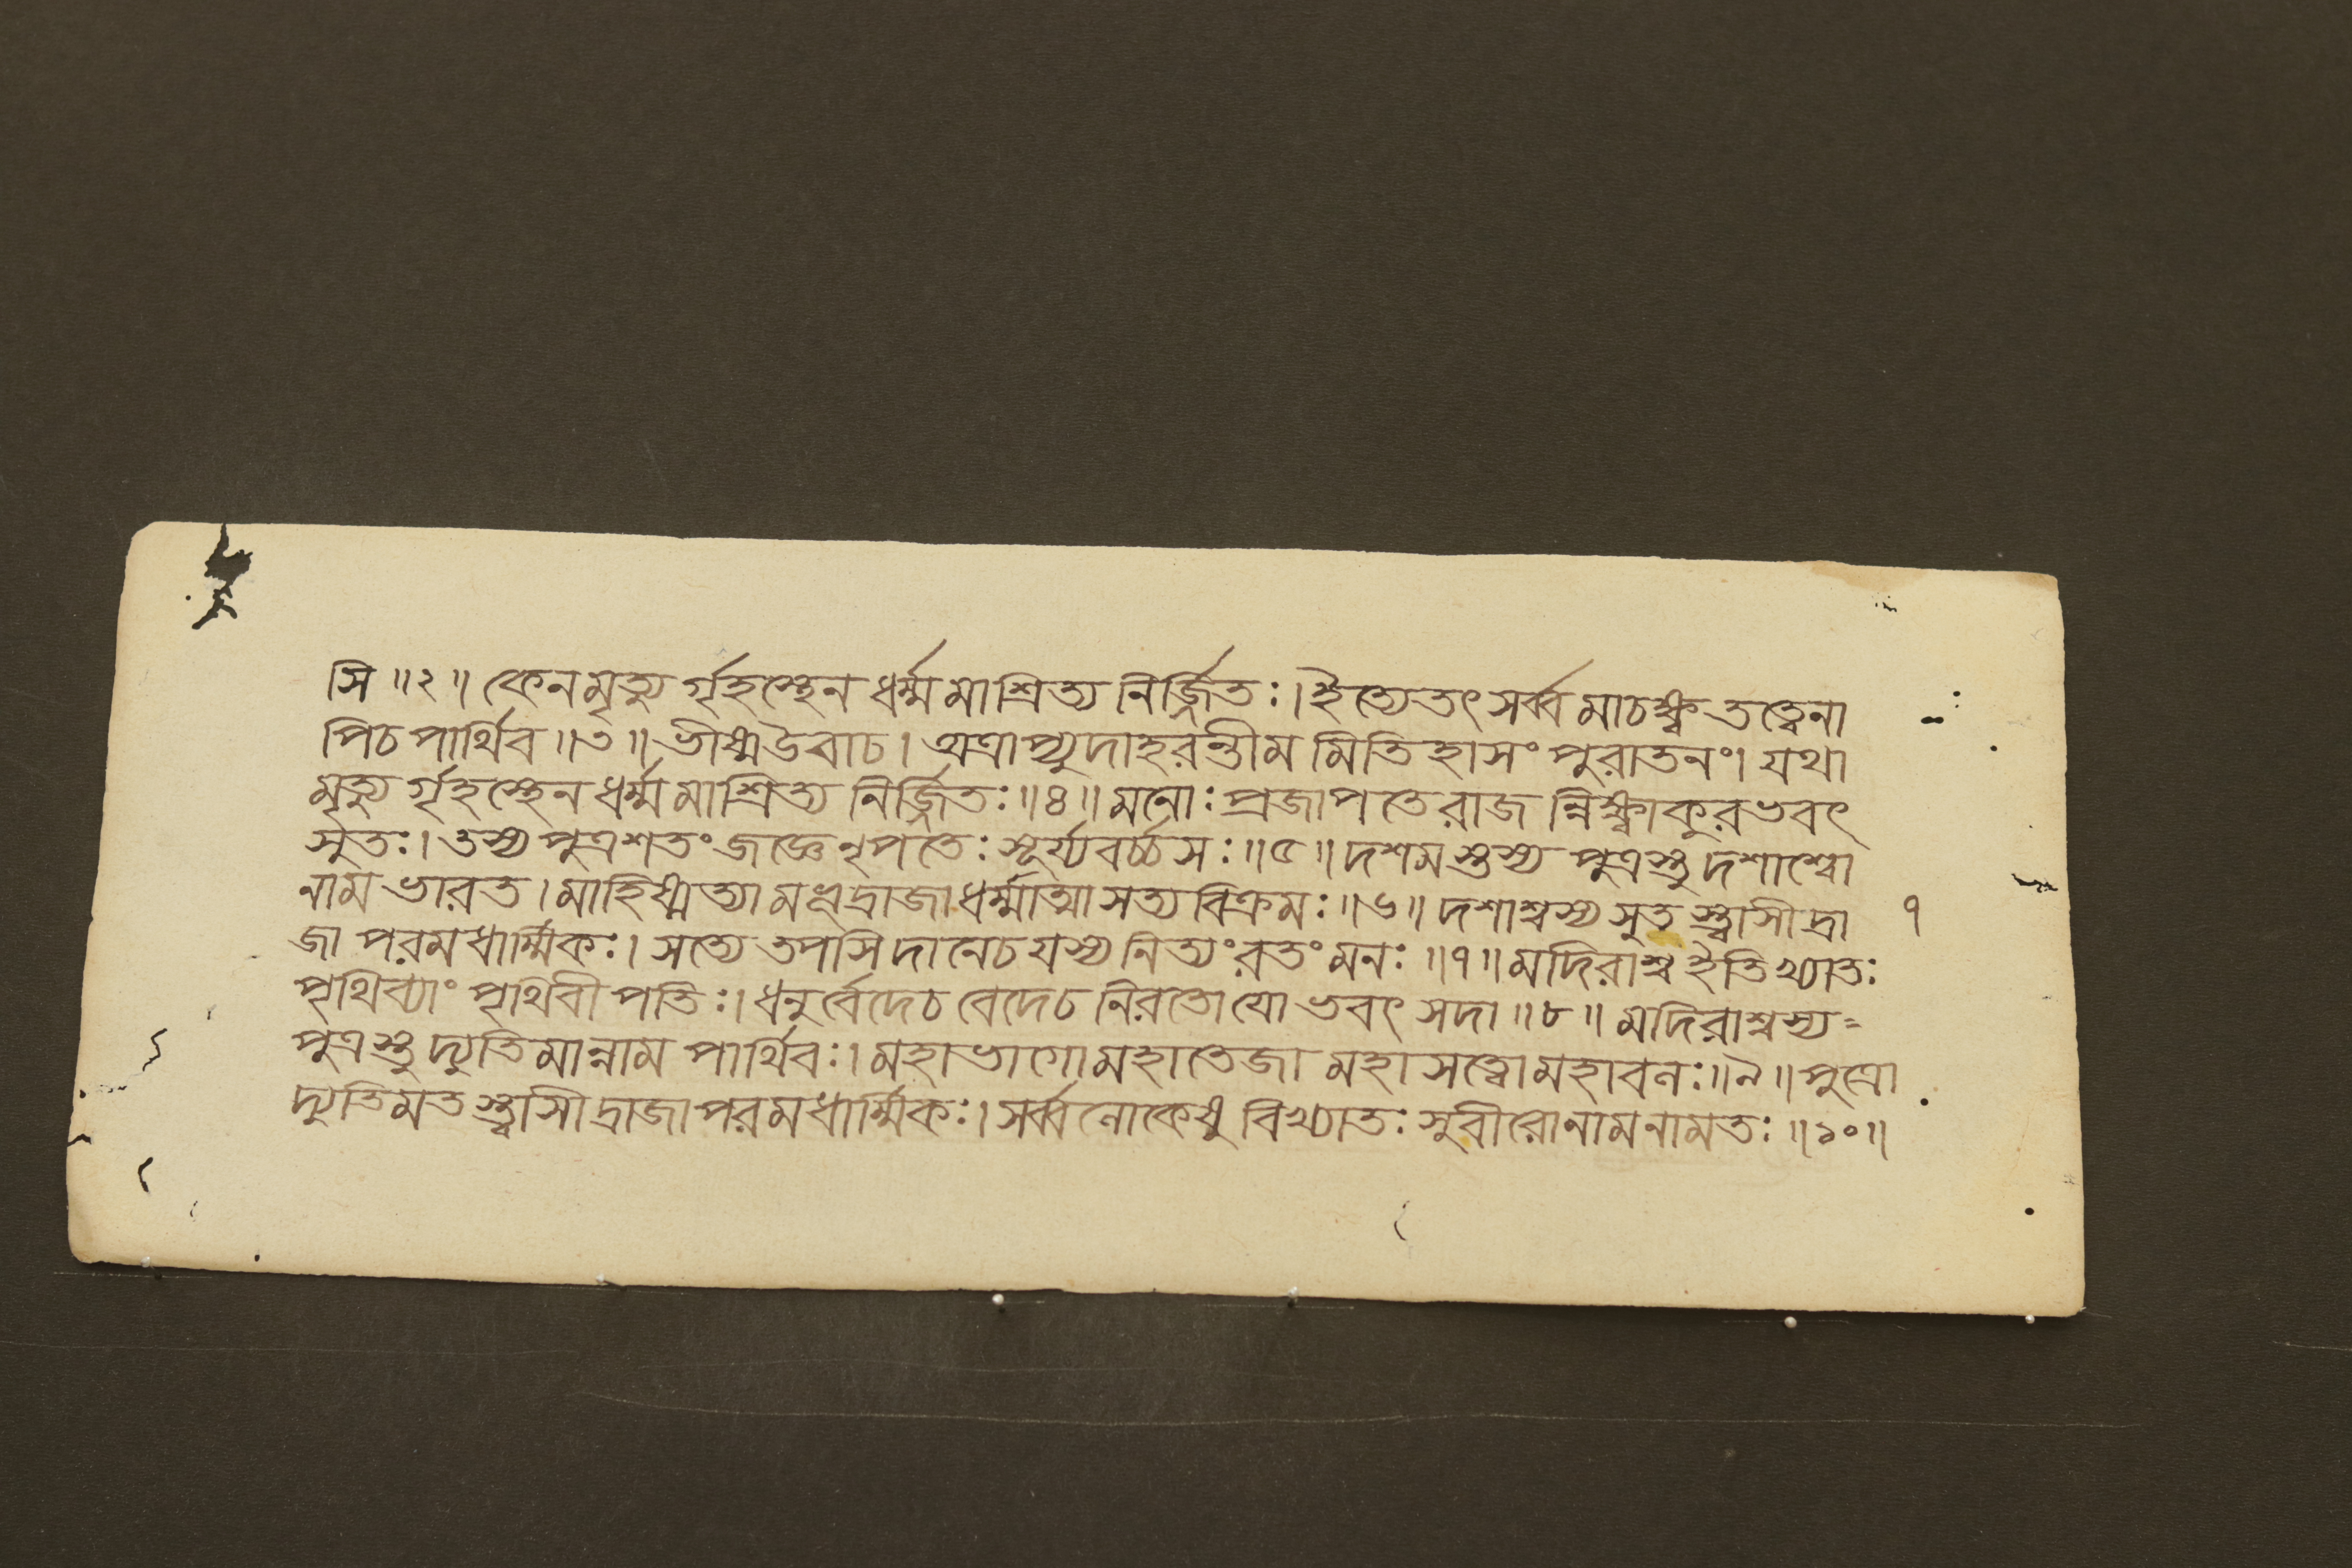 সি ॥২॥ কেনমৃত্যু র্গৃহস্থেন ধর্ম্মমাশ্রিত্য নির্জ্জিতঃ। ইত্যেতৎ সর্ব্বমাচক্ষ্ব তত্ত্বেনা
পিচ পার্থিব ॥৩॥ ভীষ্মউবাচ। অত্রাপ্যুদাহরন্তীম মিতিহাসং পুরাতনং। যথা
মৃত্যু র্গৃহস্থেন ধর্ম্মমাশ্রিত্য নির্জ্জিতঃ ॥৪॥ মনোঃ প্রজাপতে রাজ ন্নিক্ষ্বাকুরভবৎ
সুতঃ। তস্য পুত্রশতং জজ্ঞে নৃপতেঃ সূর্য্যবর্চ্চসঃ ॥৫॥ দশমস্তস্য পুত্রস্তু দশাশ্বো
নাম ভারত। মাহিষ্মত্যামভূদ্রাজা ধর্ম্মাত্মা সত্যবিক্রমঃ ॥৬॥ দশাশ্বস্য সুত স্ত্বাসীদ্রা
৭
জা পরমধার্ম্মিকঃ। সত্যে তপসি দানেচ যস্য নিত্যং রতং মনঃ ॥৭॥ মদিরাশ্ব ইতিখ্যাতঃ
পৃথিব্যাং পৃথিবীপতিঃ। ধনুর্বেদেচ বেদেচ নিরতো যো ভবৎ সদা ॥৮॥ মদিরাশ্বস্য=
পুত্রস্তু দ্যুতিমান্নাম পার্থিবঃ। মহাভাগো মহাতেজা মহাসত্ত্বো মহাবলঃ ॥৯॥ পুত্রো
দ্যুতিমত স্ত্বাসীদ্রাজা পরমধার্ম্মিকঃ। সর্ব্বলোকেষু বিখ্যাতঃ সুবীরোনামনামতঃ ॥১০॥